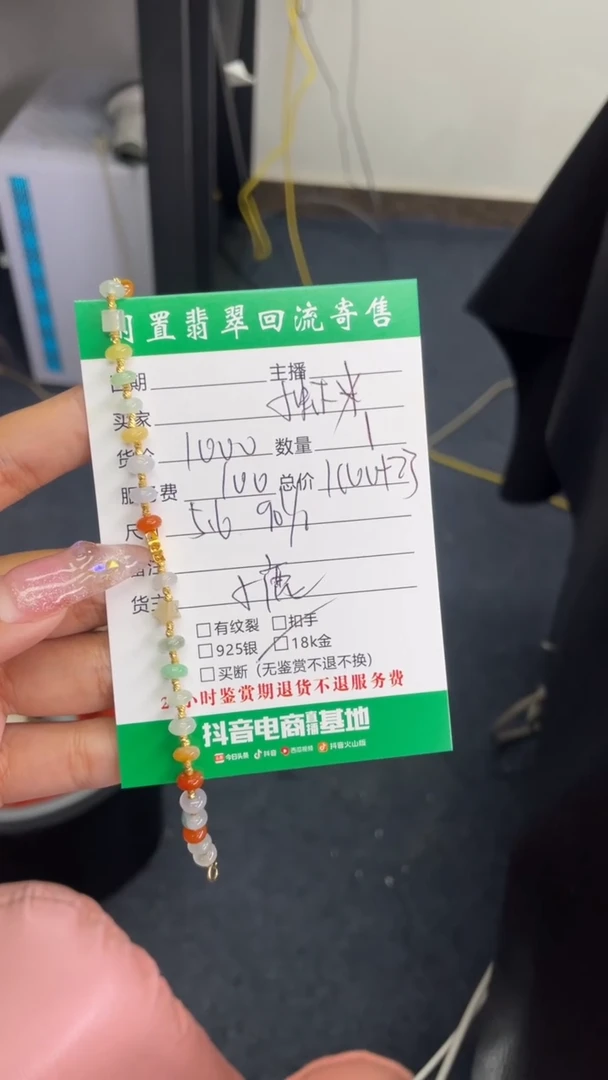 置翡翠回流寄售
期 主播
买家
货价 1000 数量 1
服务费 100 总价 1100+23
尺 56 90%
备注
货主 小鹿
□有纹裂 □扣手
□925银 □18k金
□买断（无鉴赏不退不换）
2 小时鉴赏期退货不退服务费
抖音电商直播基地
今日头条 抖音 西瓜视频 抖音火山版